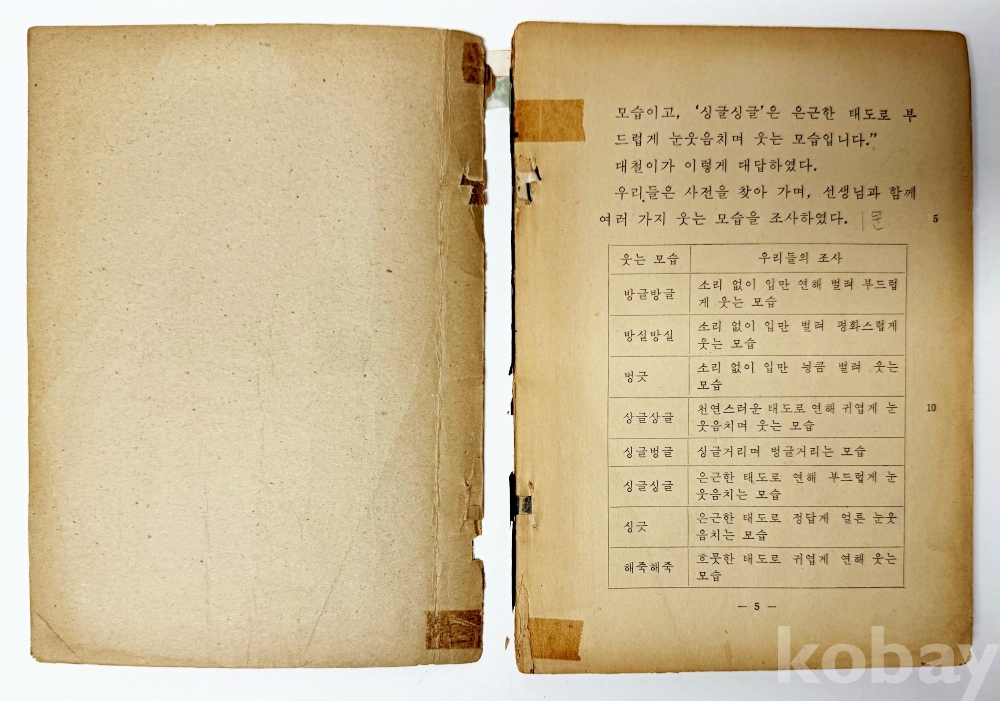 모습이고, ‘싱글싱글’은 은근한 태도로 부
드럽게 눈웃음치며 웃는 모습입니다.”
대철이가 이렇게 대답하였다.
우리들은 사전을 찾아 가며, 선생님과 함께
여러 가지 웃는 모습을 조사하였다.
5
웃는 모습 우리들의 조사
방글방글 소리 없이 입만 연해 벌려 부드럽
게 웃는 모습
방실방실 소리 없이 입만 벌려 평화스럽게
웃는 모습
벙긋 소리 없이 입만 닁큼 벌려 웃는
모습
상글상글 천연스러운 태도로 연해 귀엽게 눈
웃음치며 웃는 모습
10
싱글벙글 싱글거리며 벙글거리는 모습
싱글싱글 은근한 태도로 연해 부드럽게 눈
웃음치는 모습
싱긋 은근한 태도로 정답게 얼른 눈웃
음치는 모습
해죽해죽 흐뭇한 태도로 귀엽게 연해 웃는
모습
— 5 —
kobay